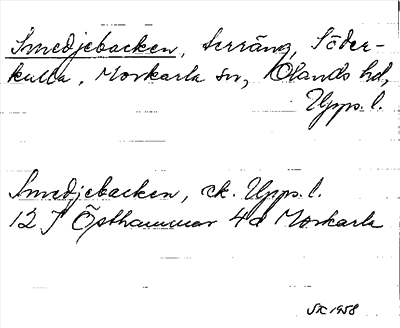 Smedjebacken, terräng, Söder-
kulla, Morkarla sn, Olands hd,
Upps. l.
Smedjebacken, ek. Upps. l.
12 I Östhammar 4d Morkarla
SK 1958